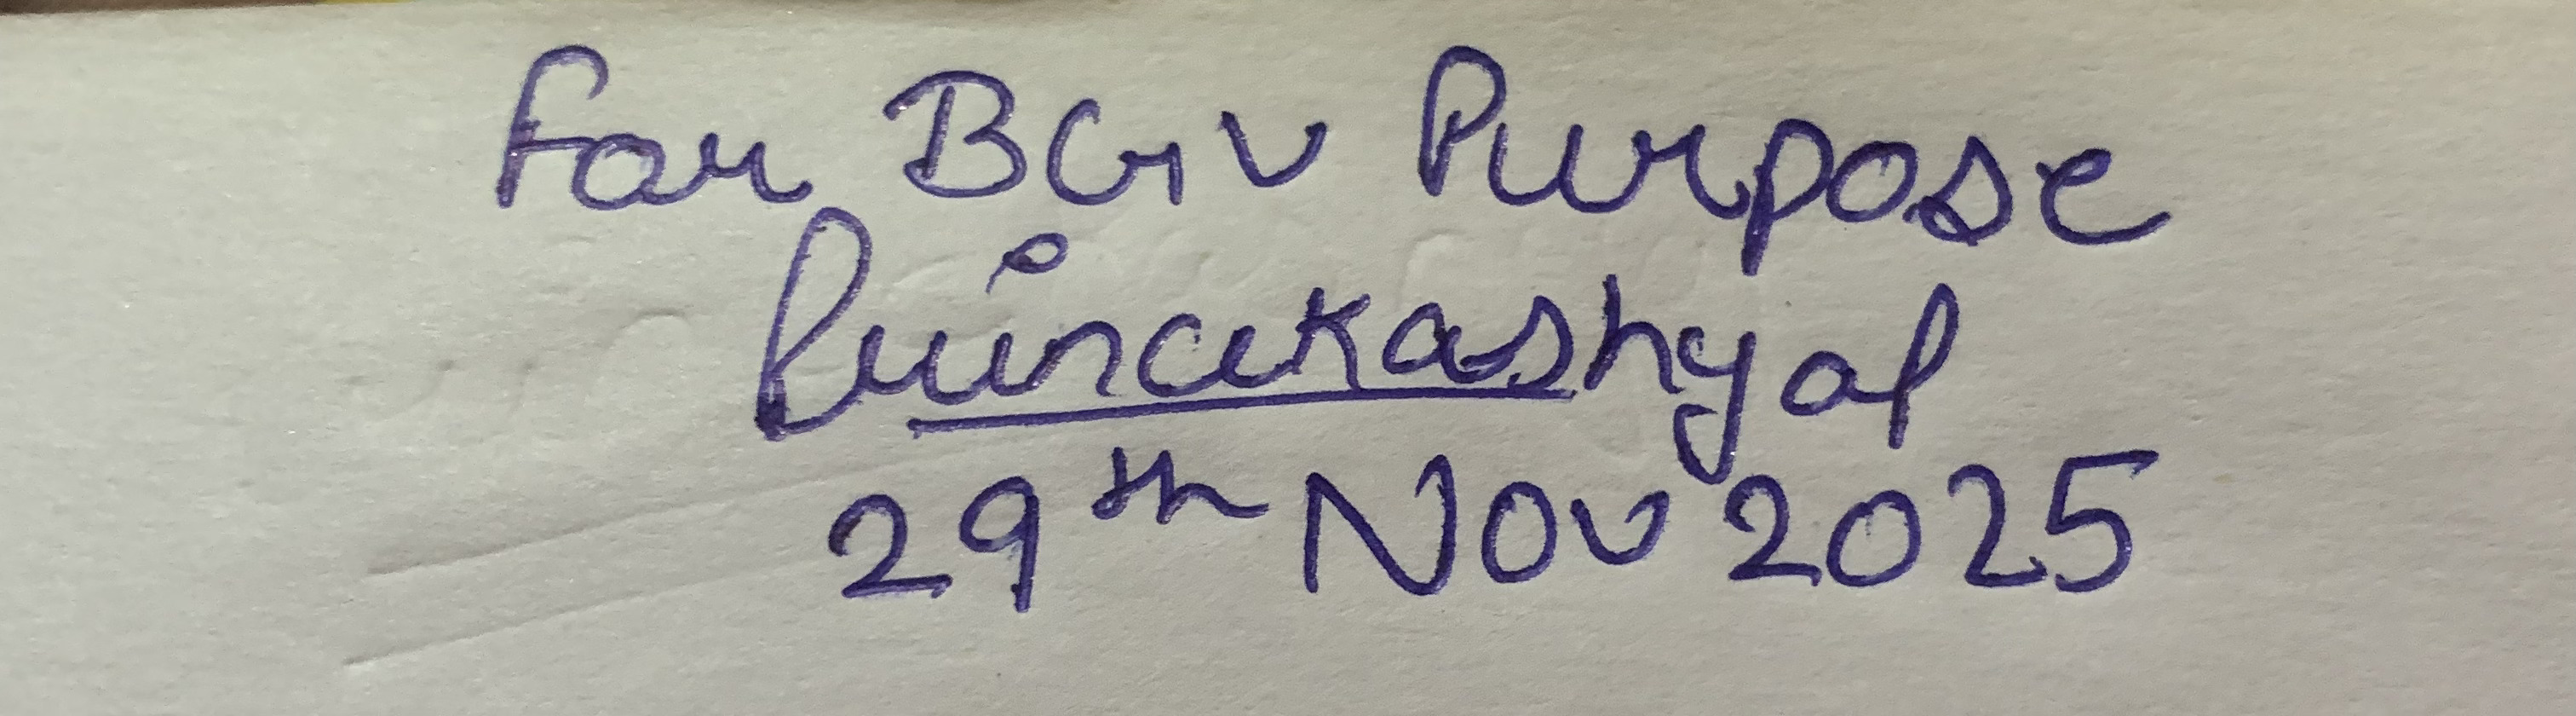 For BGV Purpose
Princekashyap
29th Nov 2025